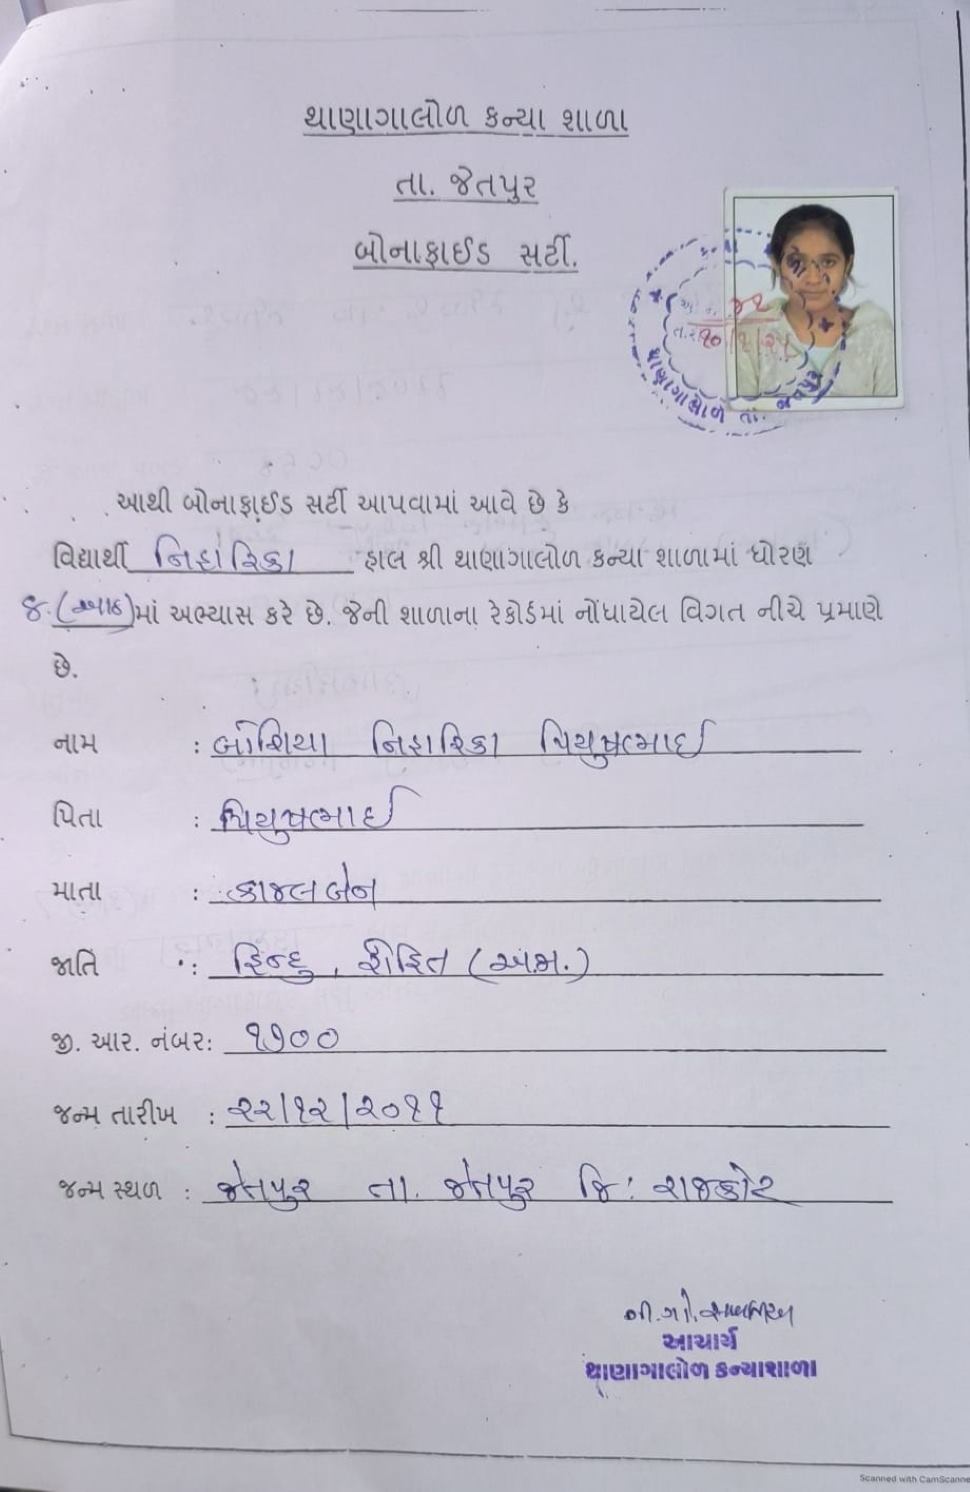 થાણાગાલોળ કન્યા શાળા
તા. જેતપુર
બોનાફાઈડ સર્ટી.
૩૨
૧૦/૧/૨૫
થાણાગાલોળ તા. જેતપુર
આથી બોનાફાઈડ સર્ટી આપવામાં આવે છે કે
વિદ્યાર્થી નિહારિકા હાલ શ્રી થાણાગાલોળ કન્યા શાળામાં ધોરણ
૮. (આઠ)માં અભ્યાસ કરે છે. જેની શાળાના રેકોર્ડમાં નોંધાયેલ વિગત નીચે પ્રમાણે
છે.
નામ : બોશિયા નિહારિકા પિયુષભાઈ
પિતા : પિયુષભાઈ
માતા : કાજલબેન
જાતિ : હિન્દુ, (અ.જા.)
જી. આર. નંબર: ૧૭૦૦
જન્મ તારીખ : ૨૨/૧૨/૨૦૧૧
જન્મ સ્થળ : જેતપુર તા. જેતપુર જિ: રાજકોટ
આચાર્ય
થાણાગાલોળ કન્યાશાળા
Scanned with CamScanne